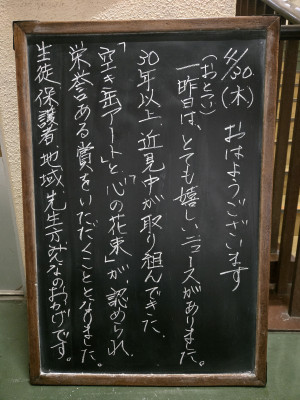 4/30(木) おはようございます
一昨日(おととい)は、とても嬉しいニュースがありました。
30年以上、近見中が取り組んできた、
「空き缶アート」と「心の花束」が、認められ、
栄誉ある賞をいただくこととなりました。
生徒、保護者、地域、先生方、みんなのおかげです。